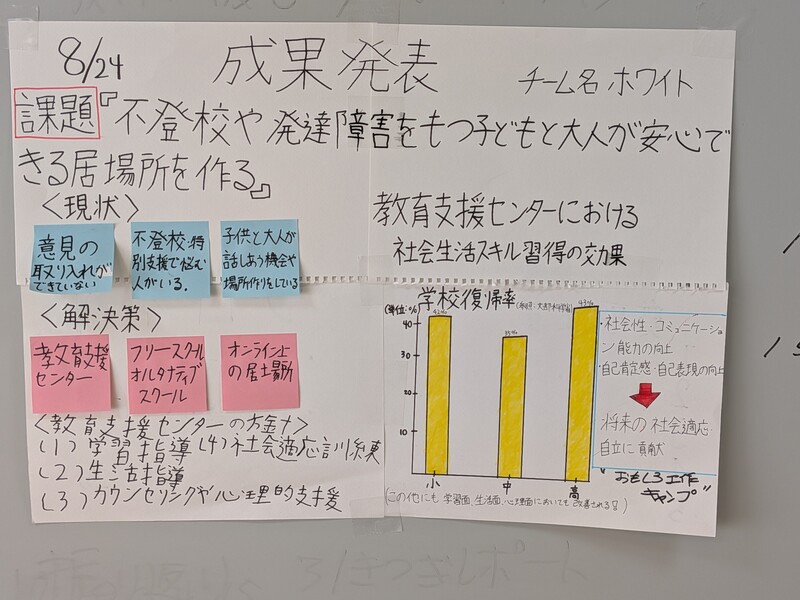 8/24
成果発表
チーム名 ホワイト
課題『不登校や発達障害をもつ子どもと大人が安心で
きる居場所を作る』
<現状>
意見の
取り入れが
できていない
不登校・特
別支援で悩む
人がいる.
子供と大人が
話しあう機会や
場所作りをしている
<解決策>
教育支援
センター
フリースクール
オルタナティブ
スクール
オンライン上
の居場所
(1) 学習指導 (4) 社会適応訓練
(2) 生活指導
(3) カウンセリングや心理的支援
教育支援センターにおける
社会生活スキル習得の効果
学校復帰率
(単位:%)
42%
35%
43%
40
30
20
10
小
中
高
・社会性・コミュニケーショ
ン能力の向上
・自己肯定感・自己表現の向上
将来の社会適応・
自立に貢献
おもしろ工作
キャンプ